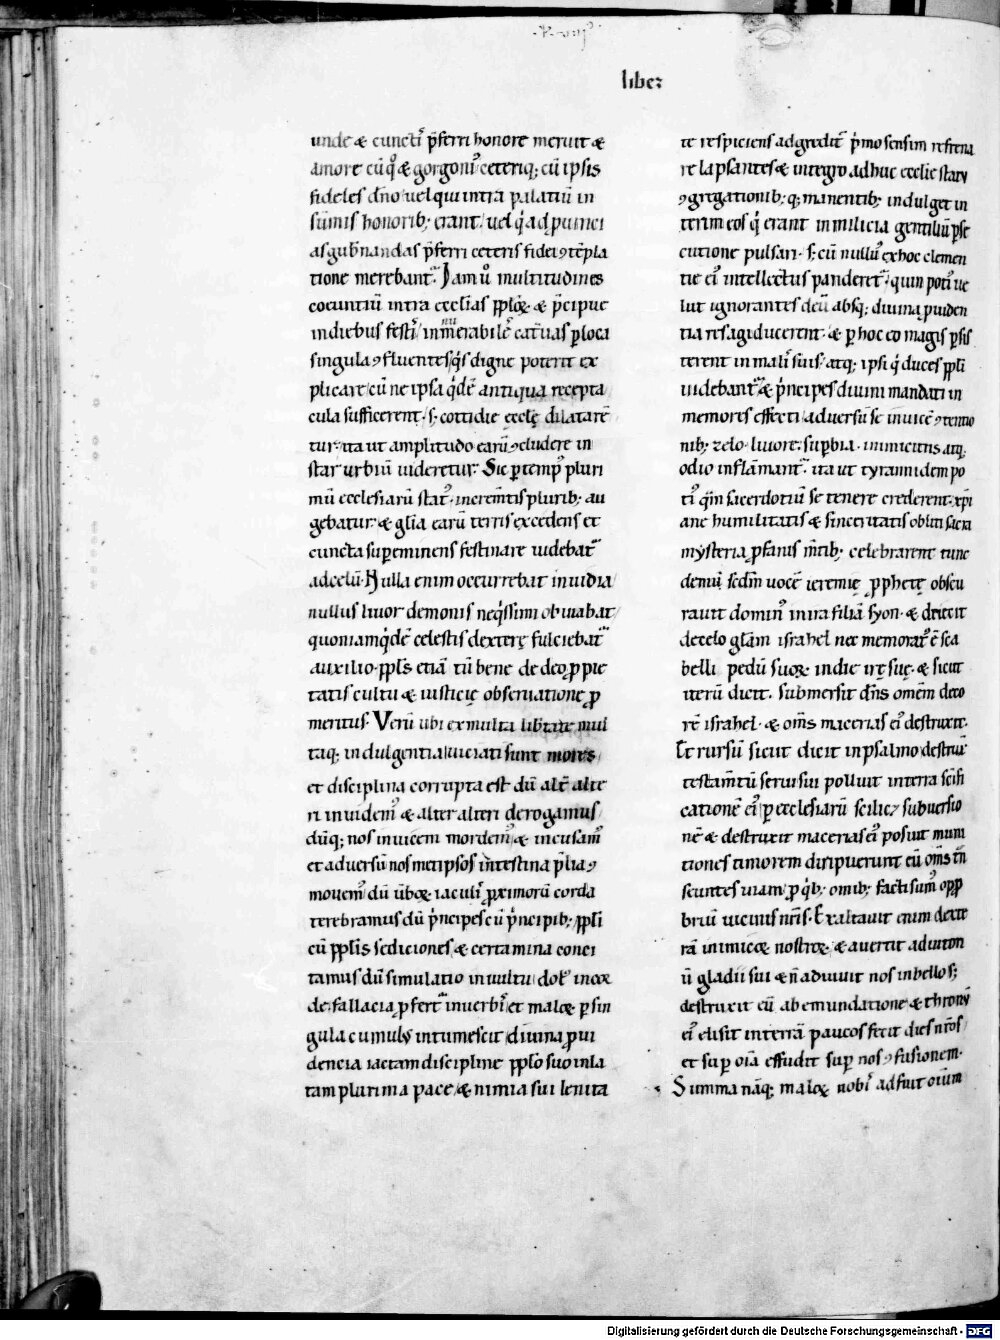 liber
unde & cuncti᷒ p̄ferri honore meruit &
amore cū q̊ & gorgoni᷒ ceteriq; cū ipsis
fideles dn̄o uel qui intra palatiū in
sūmis honorib; erant uel q̇ ad ꝓuinci
as gub̄nandas p̄ferri ceteris fidei ↄtēpla
tione merebant᷒. Jam ů multitudines
coeuntiū intra ecclīas pp̄loꝝ & p̄cipue
indiebus festis innumerabileˢ cat̄uas ꝑ loca
singula ↄfluentes q̇s digne poterit ex
plicare cū ne ipsa q̇dē antiqua recepta
cula sufficerent. s; cottidie eccl̄ę dilatarē
tur. ita ut amplitudo earū ↄcludere in
star urbiū uideretur. Sic ꝑ temp᷒ pluri
mū ecclesiarū stat᷒. incrēmtis plurib; au
gebatur & glīa earū terris excedens et
cuncta suꝑeminens festinare uidebat᷒
ad celū. Nulla enim occurrebat inuidia
nullus liuor demonis neq̇ssimi obuiabat
quoniam q̇dē celestis dexterę fulciebat᷒
auxilio. pp̄ls etiā tū bene de deo ꝓ pie
tatis cultu & iusticię obseruatione ꝓ
meritus. Verū ubi ex multa lib̄tate mul
taq; indulgentia uiciati sunt mores
et disciplina corrupta est dū alt̄ alte
ri inuidem᷒ & alter alteri derogamus
dūq; nos inuicem mordem᷒ & incusam᷒
et aduersū nosmetipsos intestina p̄lia ↄ
mouem᷒ dū ūboꝝ iaculis ꝓximorū corda
terebramus dū p̄ncipes cū p̄ncipib; pp̄li
cū pp̄lis sediciones & certamina conci
tamus dū simulatio in uultu dol᷒ in cor
de fallacia ꝓfert᷒ in uerbis et maloꝝ ꝑ sin
gula cumul᷒ intumescit diuina ꝓui
dencia iactam discipline pp̄lo suo inla
tam plurima pace & nimia sui lenita
te respiciens adgredit᷒ p̄mo sensim refrena
re lapsantes & integro adhuc ecclīe statu
ↄgregationib; q; manentib; indulget in
terim eos q̇ erant in milicia gentiliū ꝑse
cutione pulsari. s; cū nullū ex hoc clemen
tie ei᷒ intellectus panderet᷒. quin poti᷒ ue
lut ignorantes deū absq; diuina ꝓuiden
tia res agi ducerent. & ꝑ hoc eo magis ꝑsis
terent in malis suis. atq; ipsi q̇ duces pp̄li
uidebant᷒ & p̄ncipes diuini mandati in
memores effecti aduersū se inuicē ↄtentio
nib; zelo. liuore. suꝑbia. inimicitiis atq;
odio inflāmant᷒. ita ut tyrannidem po
ti᷒ q̄m sacerdotiū se tenere crederent. xp̄i
ane humilitatis & sinceritatis obliti sacra
mysteria ꝓfanis m̄tib; celebrarent tunc
demū sedm̄ uocē ieremię ꝓphetę obscu
rauit domin᷒ in ira filiā syon. & deiecit
de celo glām israhel nec memorat᷒ ē sca
belli pedū suoꝝ in die irę suę. & sicut
iterū dicit. submersit dn̄s omēm deco
rē israhel. & om̄s macerias ei᷒ destruxit.
Et rursū sicut dicit in psalmo destrux̄
testam̄tū serui sui polluit in terra sc̄ifi
cationē ei᷒ ꝑ ecclesiarū scilic; subuersio
nē & destruxit macerias ei᷒ posuit muni
tiones timorem diripuerunt eū om̄s tn̄
seuntes uiam ꝑ q̇b; omīb; facti sum᷒ opp̄
briū uicinis nr̄is. Exaltauit enim dexte
rā inimicoꝝ nostroꝝ & auertit adiutori
ū gladii sui & n̄ adiuuit nos in bello s;
destruxit eū ab emundatione & thronū
ei᷒ elisit in terrā paucos fecit dies nr̄os
et suꝑ oīa effudit suꝑ nos ↄfusionem.
Summa nāq; maloꝝ nobis adfuit oīum
Digitalisierung gefördert durch die Deutsche Forschungsgemeinschaft - DFG